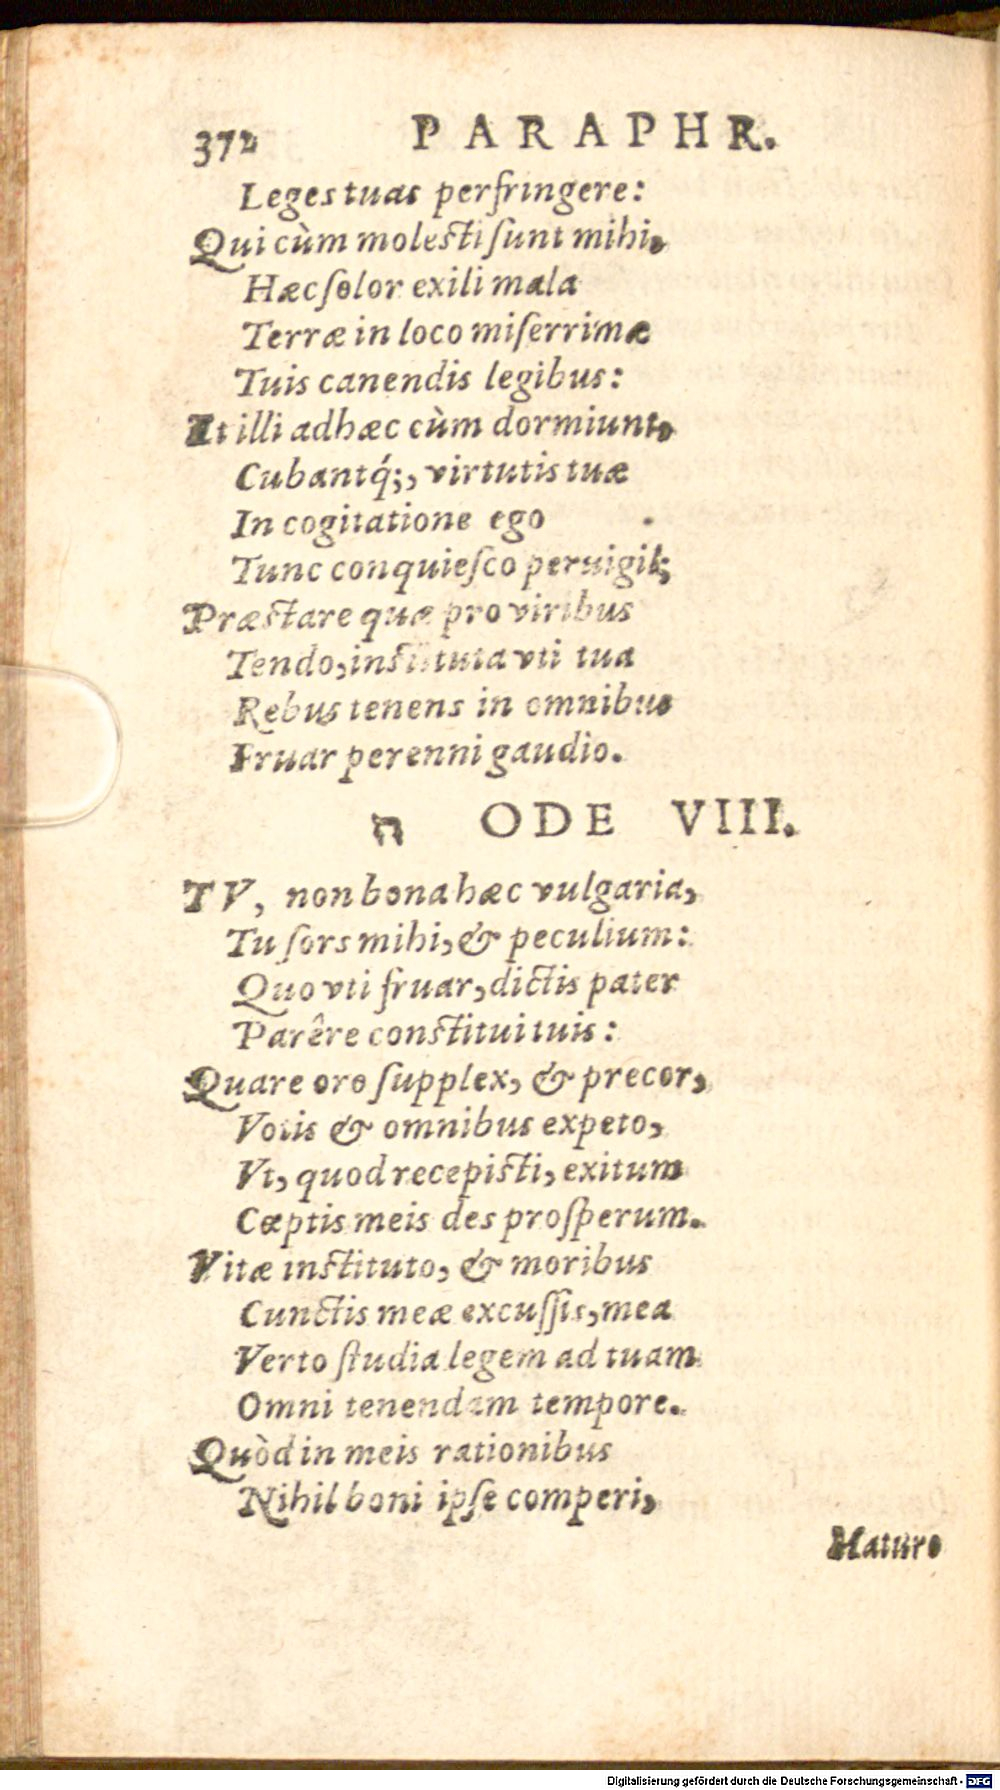 372 PARAPHR.
Leges tuas perfringere:
Qui cùm molesti ſunt mihi,
Hæc ſolor exili mala
Terræ in loco miſerrimæ
Tuis canendis legibus:
Et illi adhæc cùm dormiunt,
Cubantq́;, virtutis tuæ
In cogitatione ego
Tunc conquieſco peruigil;
Præstare quæ pro viribus
Tendo, instituta vti tua
Rebus tenens in omnibus
Fruar perenni gaudio.
ח ODE VIII.
TV, non bona hæc vulgaria,
Tu ſors mihi, & peculium:
Quo vti fruar, dictis pater
Parêre constitui tuis:
Quare oro ſupplex, & precor,
Votis & omnibus expeto,
Vt, quod recepisti, exitum
Cœptis meis des proſperum.
Vitæ instituto, & moribus
Cunctis meæ excuſſis, mea
Verto ſtudia legem ad tuam
Omni tenendam tempore.
Quòd in meis rationibus
Nihil boni ipſe comperi,
Maturo
Digitalisierung gefördert durch die Deutsche Forschungsgemeinschaft - DFG